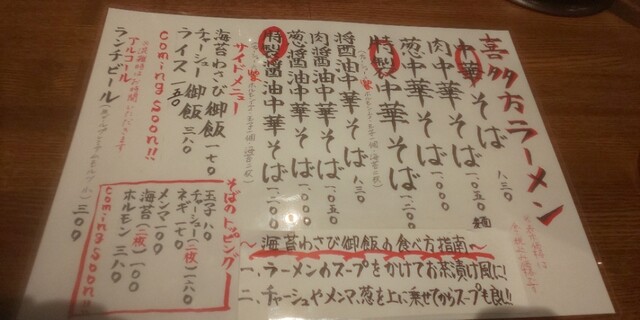 喜多方ラーメン
中華そば 八三〇
肉中華そば 一、〇五〇
葱中華そば 一、〇〇〇
特製中華そば 一、二〇〇
醤油中華そば 八三〇
肉醤油中華そば 一、〇五〇
葱醤油中華そば 一、〇〇〇
特製醤油中華そば 一、二〇〇
サイドメニュー
海苔わさび御飯 一七〇
チャーシュー御飯 三八〇
ライス 一五〇
coming soon!!
アルコール
ランチビール 三〇〇
そばのトッピング
玉子 八〇
チャーシュー(二枚) 二六〇
ネギ 一七〇
メンマ 一〇〇
海苔(二枚) 一〇〇
ホルモン 三八〇
coming soon!!
〜海苔わさび御飯の食べ方指南〜
一、ラーメンのスープをかけてお茶漬け風に!
二、チャーシュやメンマ、葱を上に乗せてからスープも良い!!